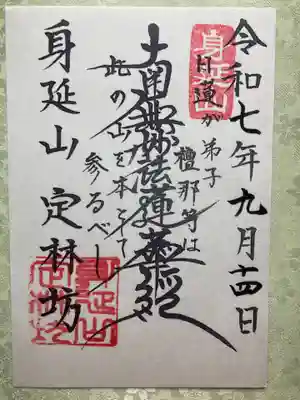 令和七年九月十四日
身延山
日蓮が弟子
檀那等は
南無妙法蓮華経
此の山を本として
参るべし
身延山 定林坊